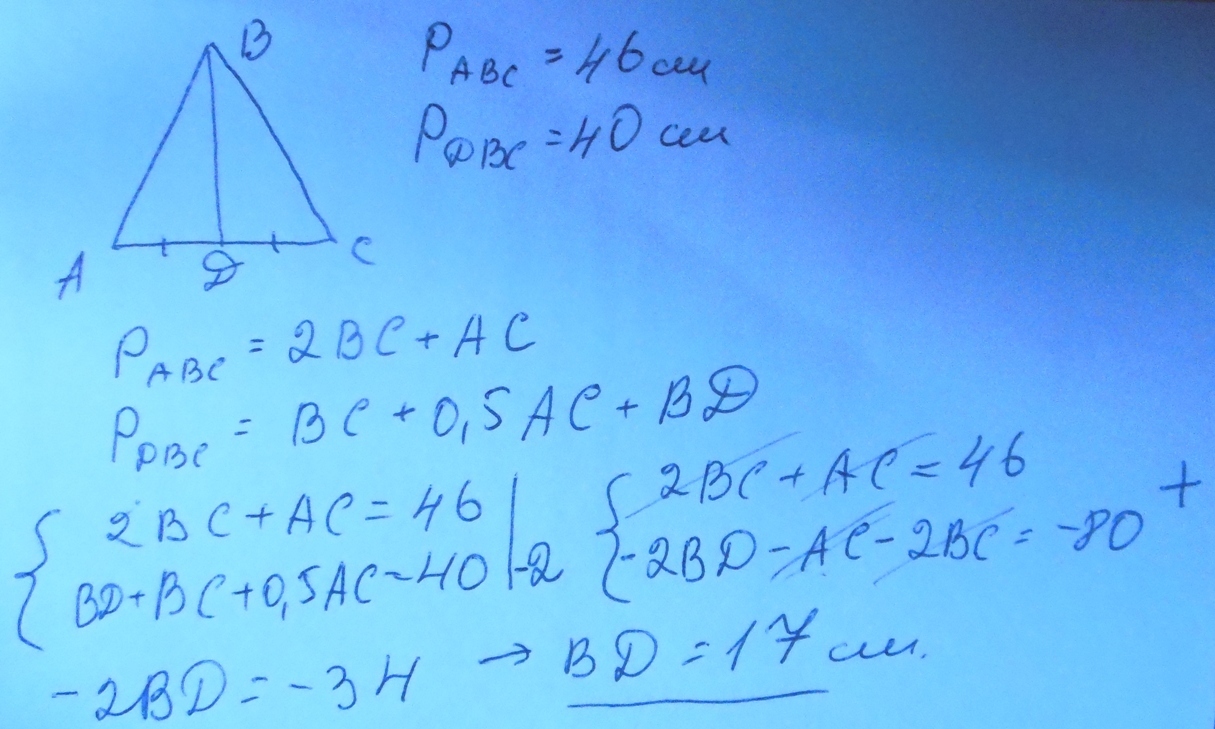 B
P_ABC = 46 см
P_DBC = 40 см
A D C
P_ABC = 2BC + AC
P_DBC = BC + 0,5AC + BD
{ 2BC + AC = 46 | { 2BC + AC = 46 +
BD + BC + 0,5AC = 40 |-2 -2BD - AC - 2BC = -80
-2BD = -34 → BD = 17 см.